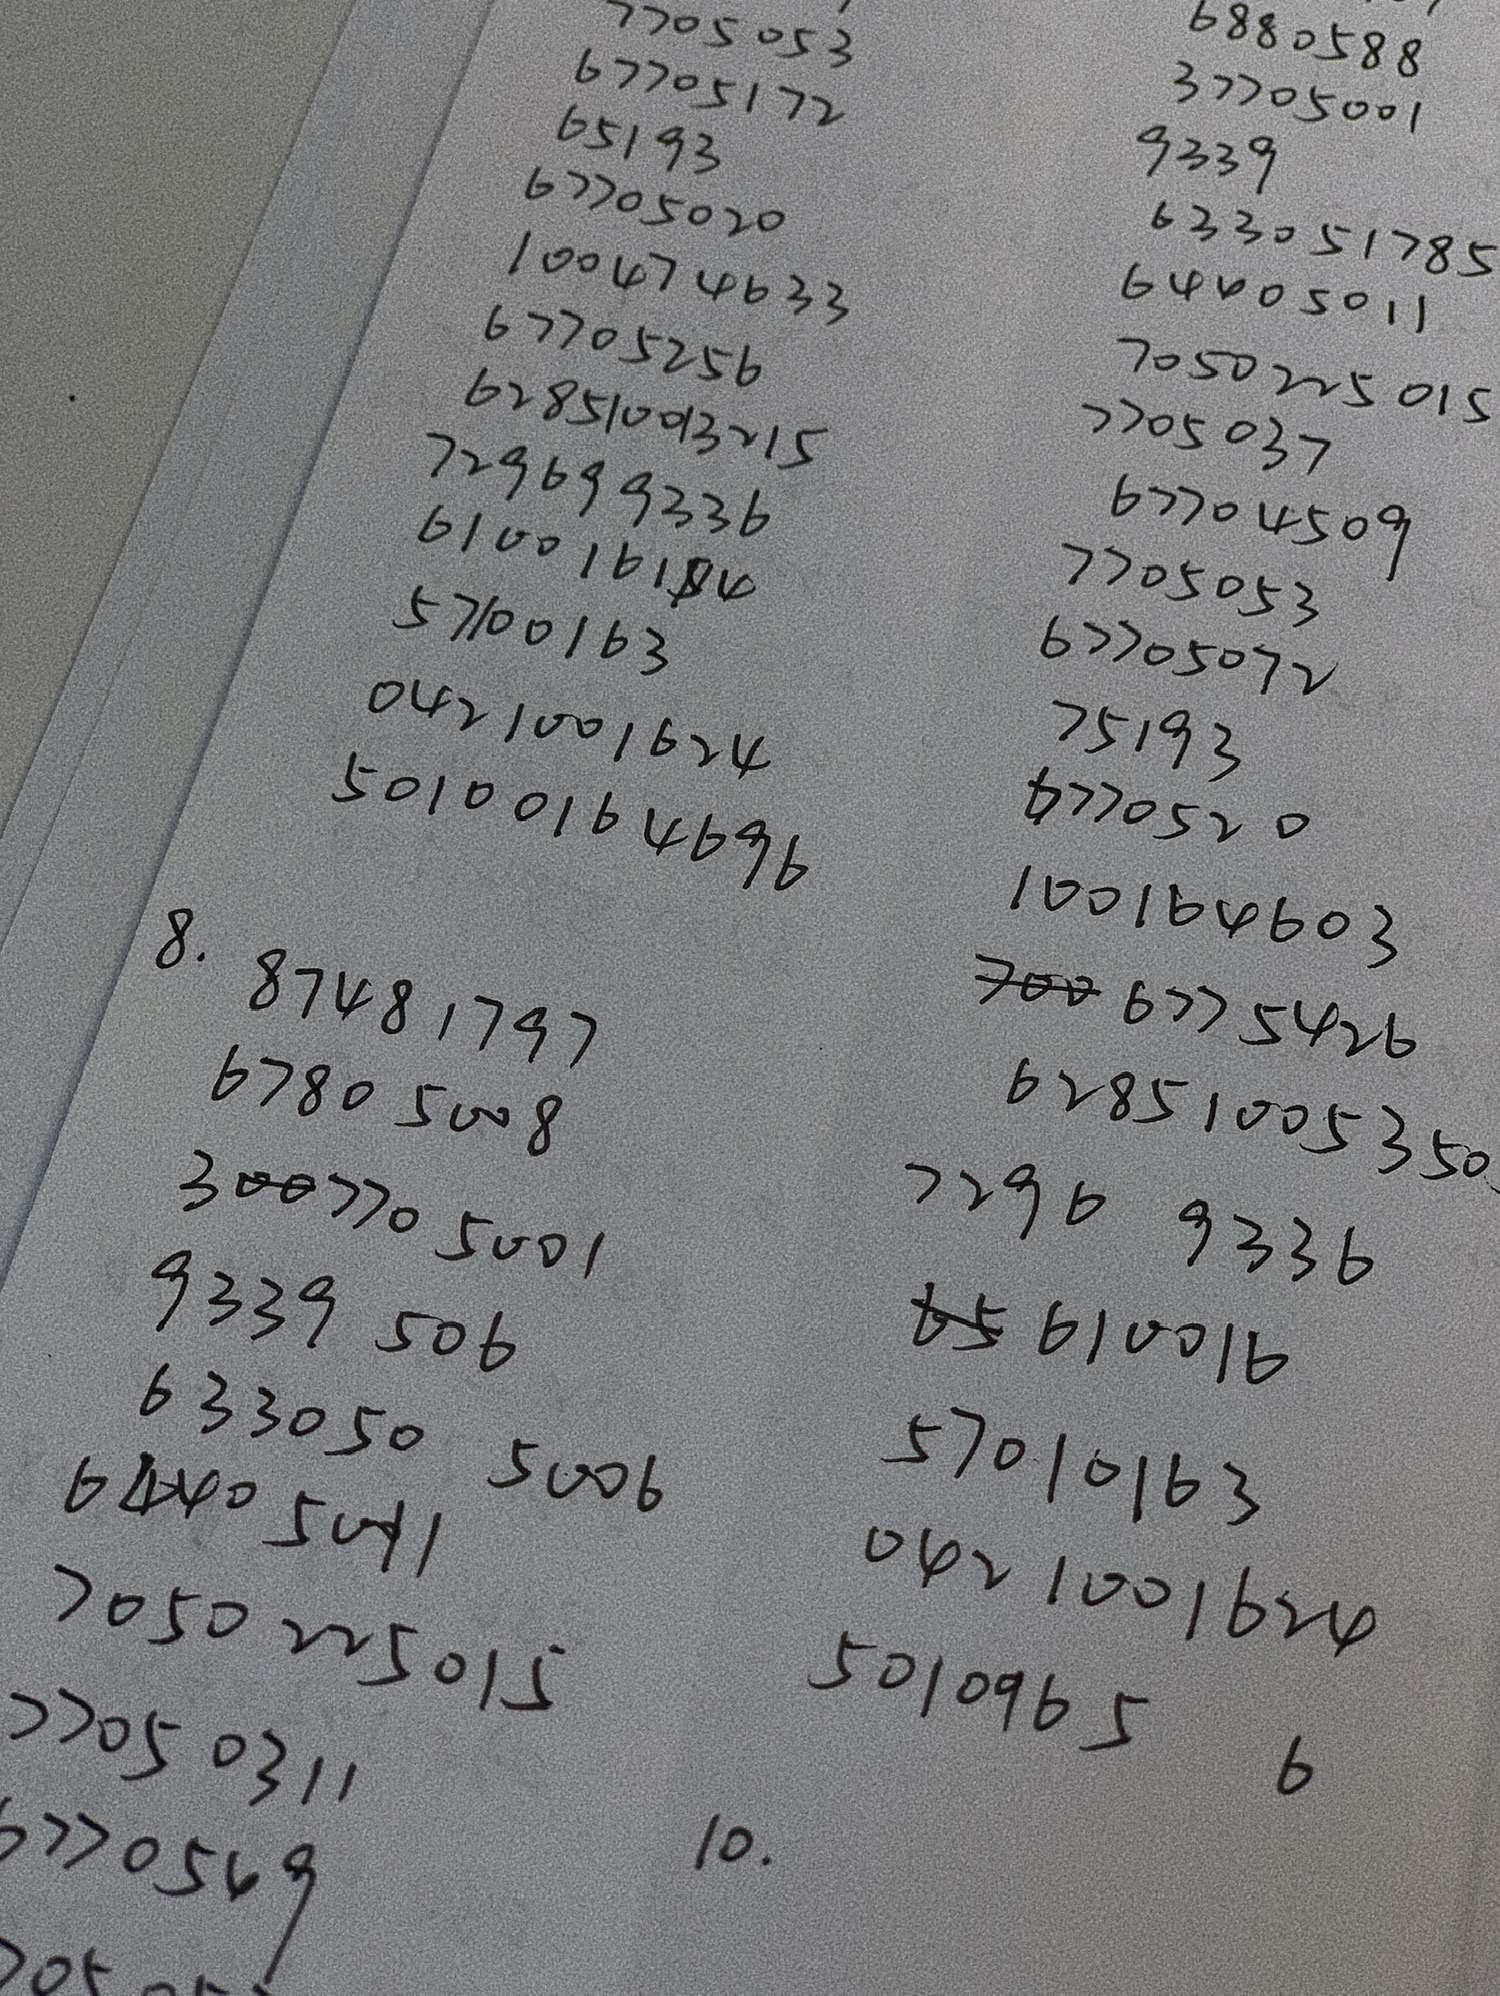 7705053
67705172
65193
67705020
100474633
67705256
62851003215
729699336
57100163
0421001624
50100164696
8.
87481797
67805008
300770 5001
9339 506
633050 5006
6440 5011
7050225015
7705 0311
6770569
6880588
37705001
9339
633051785
64405011
7050225015
7705037
67704509
7705053
67705072
75193
6770520
100164603
700 6775426
62851005350
7296 9336
65 610016
57010163
042 1001624
5010965 6
10.